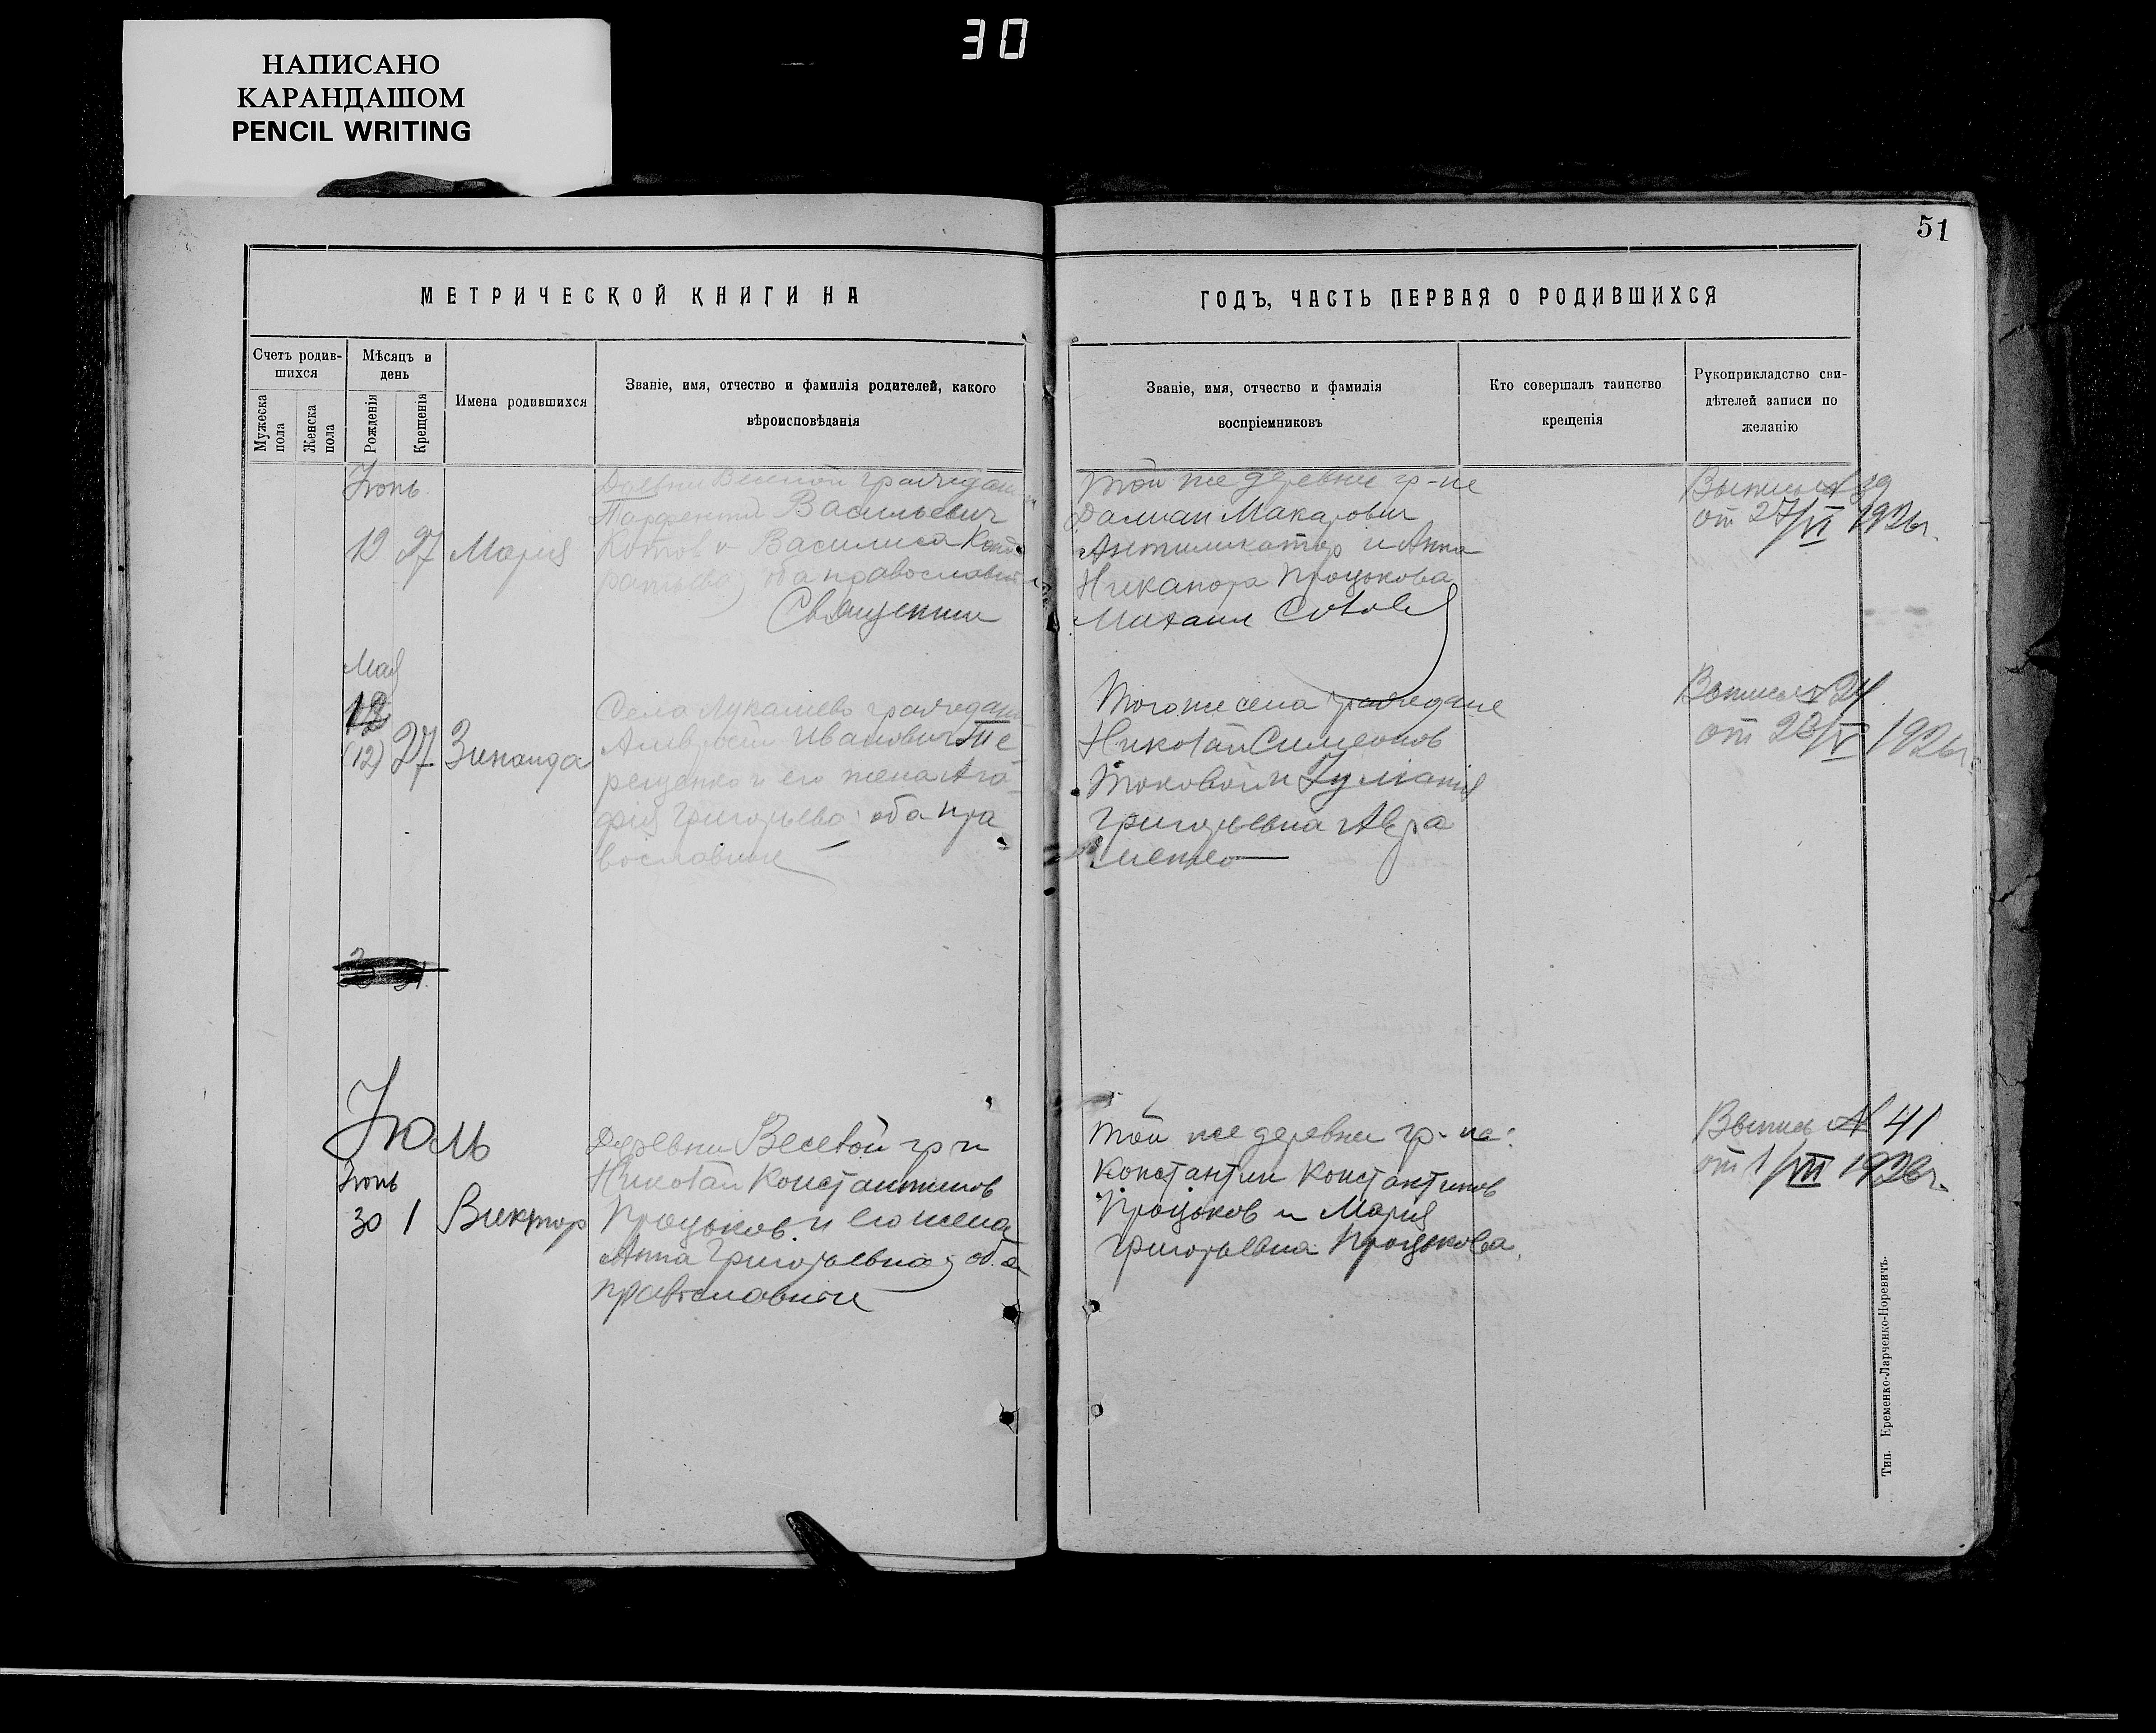 30
НАПИСАНО
КАРАНДАШОМ
PENCIL WRITING
51
МЕТРИЧЕСКОЙ КНИГИ НА
ГОДЪ, ЧАСТЬ ПЕРВАЯ О РОДИВШИХСЯ
Счетъ родив-
шихся
Мужеска
пола
Женска
пола
Мѣсяцъ и
день
Рожденія
Крещенія
Имена родившихся
Званіе, имя, отчество и фамилія родителей, какого
вѣроисповѣданія
Званіе, имя, отчество и фамилія
воспріемниковъ
Кто совершалъ таинство
крещенія
Рукоприкладство сви-
дѣтелей записи по
желанію
Июнь
12 27 Мария
Деревни Веселой граждан
Парфентий Васильевич
Котов и Василиса Конд
ратьева, оба православн
Священник
Той же деревни гр-не
Макарович
и Анна
Никанора Процокова
Михаил
Выпись № 39
от 27/VI 1926г.
Мая
(12) 27 Зинаида
Села Лукашево граждан
Амвросий Иванович Те
рещенко и его жена Ага
фия Григорьева: оба пра
вославные
Того же села граждане
Николай Симеонов
Токовой и
Григорьевна Авра
менко
Выпись №
от /V 1926г.
Июль
Июнь
30 1 Виктор
Деревни Веселой гр-н
Николай Константинов
Процоков и его жена
Анна Григорьевна, оба
православные
Той же деревни гр-не:
Константин Константинов
Процоков и Мария
Григорьевна Процокова.
Выпись № 41
от 1/VII 1926г.
Тип. Еременко-Ларченко-Норевичъ.